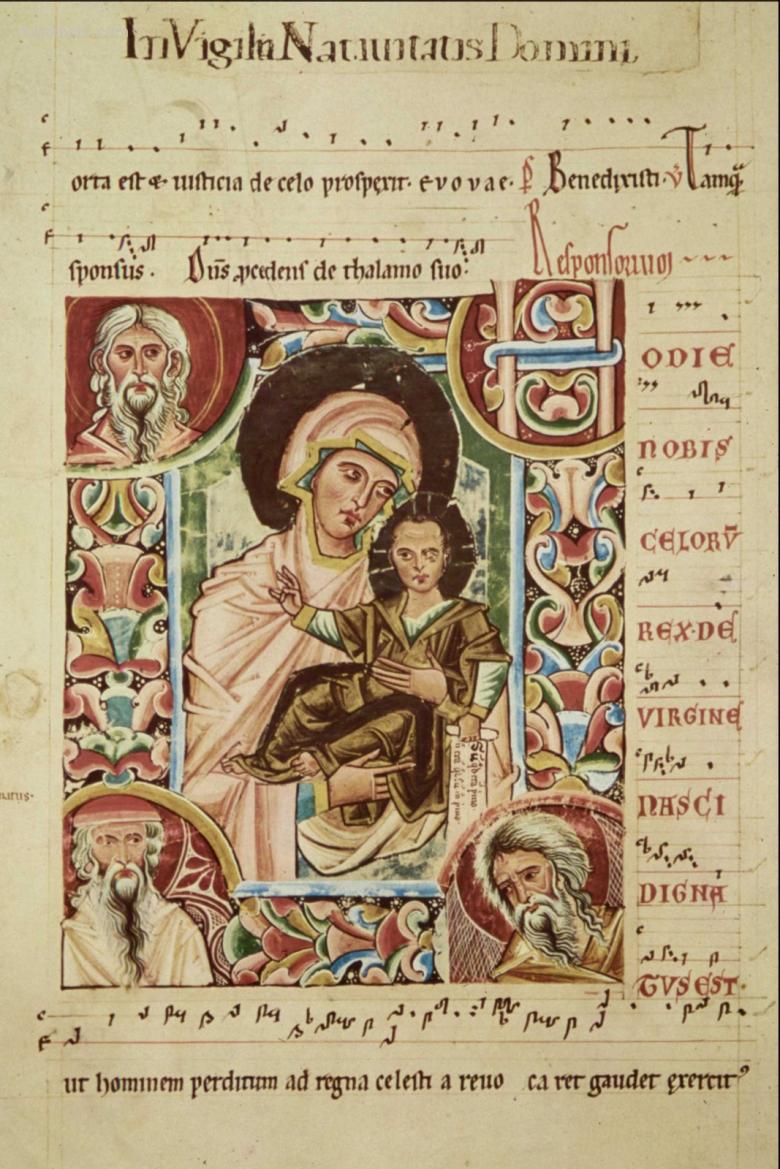 In Vigilia Natiuitatis Domini
orta est & iusticia de celo prospexit. evovae. ps Benedixisti. v Tamq̄
sponsus. Dn̄s p̱cedens de thalamo suo.
Responsorium
ODIE
NOBIS
CELORV̄
REX·DE
VIRGINE
NASCI
DIGNA
TVS EST
ut hominem perditum ad regna celesti a reuo ca ret gaudet exercit⁹